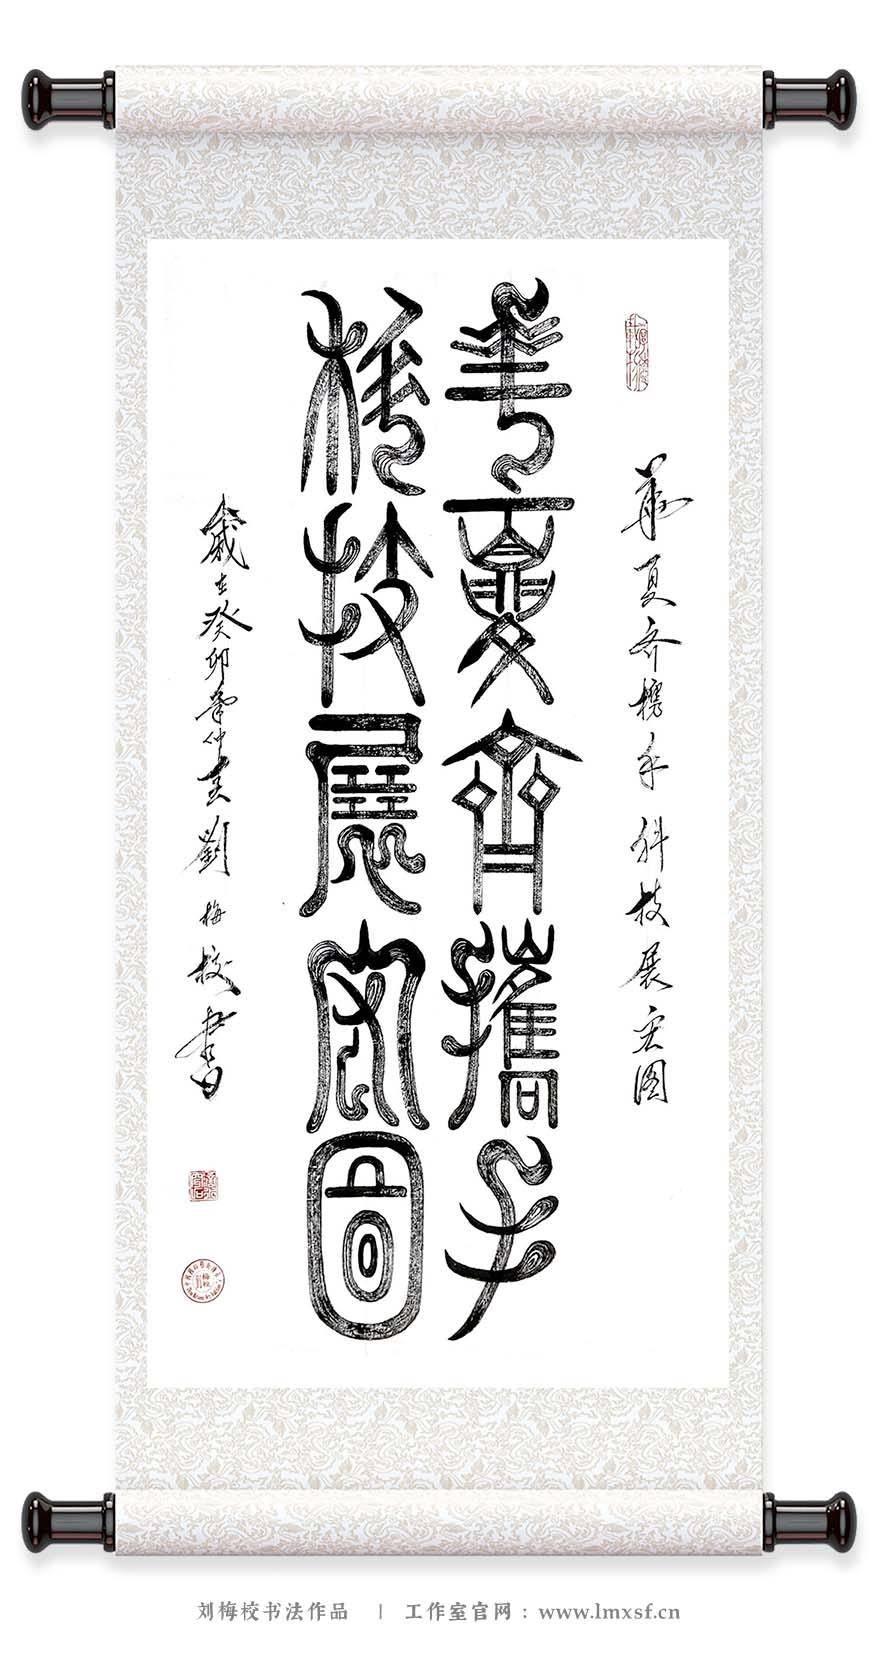 華夏齊攜手
科技展宏圖
華夏齐攜手科技展宏図
歲在癸卯年仲春劉梅校書
刘梅校书法作品 | 工作室官网：www.lmxsf.cn